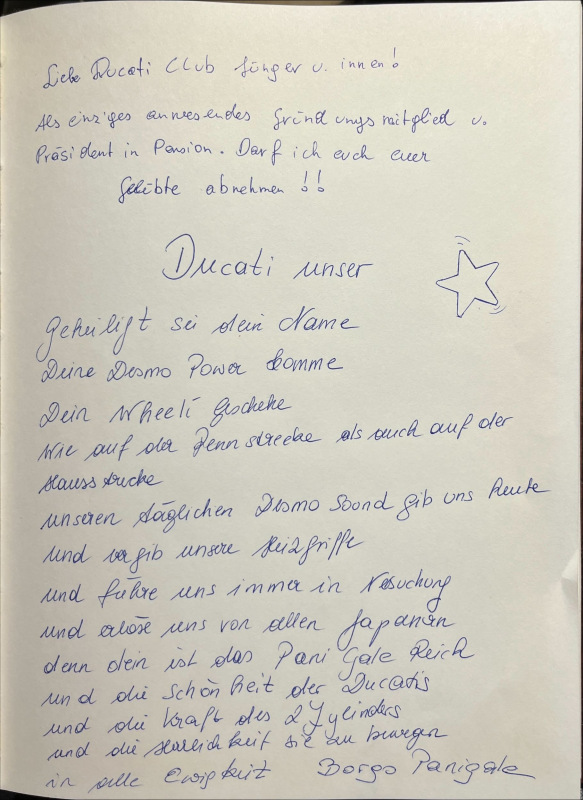 Liebe Ducati Club Jünger u. innen!
Als einziges anwesendes Gründungsmitglied u.
Präsident in Pension. Darf ich euch euer
Gelübte abnehmen!!
Ducati unser
geheiligt sei dein Name
Deine Desmo Power komme
Dein Wheeli geschehe
wie auf der Rennstrecke als auch auf der
Hausstrecke
unseren täglichen Desmo Sound gib uns heute
und vergib unsere Heizgriffe
und führe uns immer in Versuchung
und erlöse uns von allen Japanern
denn dein ist das Pani Gale Reich
und die Schönheit der Ducatis
und die Kraft des 2 Zylinders
und die Herrlichkeit sie zu bewegen
in alle Ewigkeit Borgo Panigale